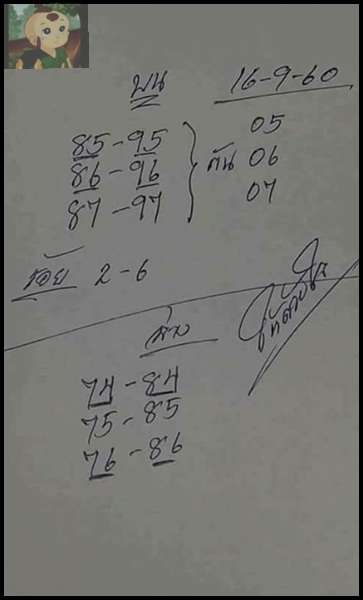 บน 16-9-60
85-95 05
86-96 กัน 06
87-97 07
ร้อย 2-6
ล่าง
74-84
75-85
76-86